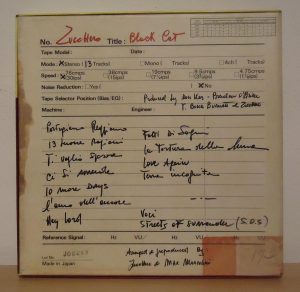 No. Zucchero Title: Black Cat
Tape Model: Date:
Mode: Stereo (13 Tracks) Mono ( Tracks) 4ch ( Tracks)
Speed: 76cm/s 38cm/s 19cm/s 9.5cm/s 4.75cm/s
(30ips) (15ips) (7½ips) (3¾ips) (1⅞ips)
Noise Reduction: Yes ( ) No
Tape Selector Position (Bias/EQ): Produced by Don Was - Brendan O'Brien
Machine: Engineer: T. Bone Burnett & Zucchero
Partigiano Reggiano
13 buone ragioni
Ti voglio sposare
Ci si arrende
10 more days
L'anno dell'amore
Hey Lord
Fatti di sogni
La tortura della luna
Love Again
Terra incognita
Voci
Streets of surrender (S.O.S)
Reference Signal: Hz VU/ Hz VU/ Hz VU
Arranged & preproduced by:
Zucchero & Max Marcolini
Lot No.
Made in Japan